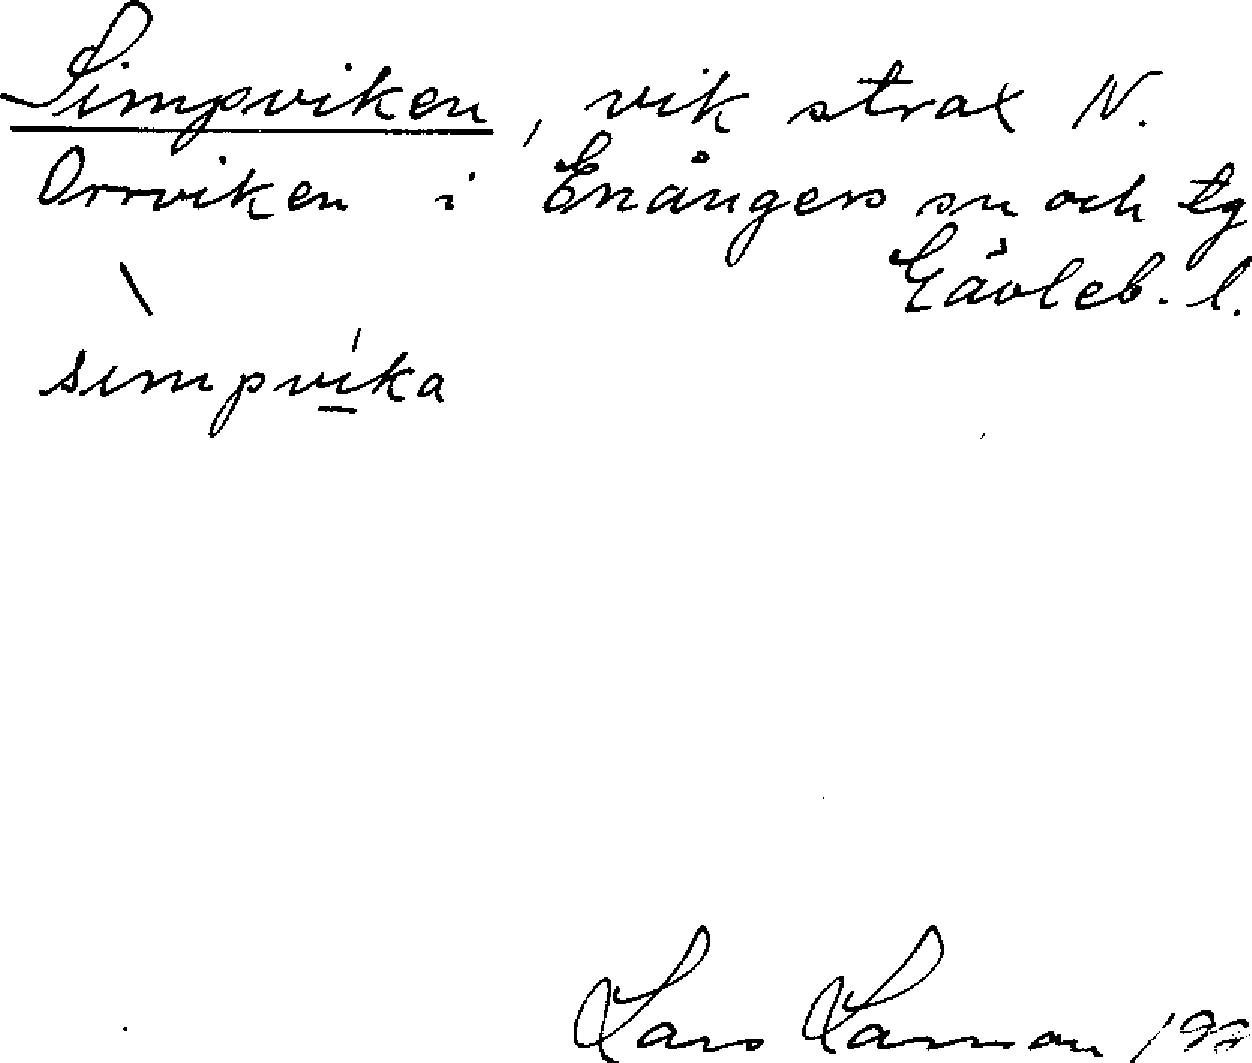 Simpviken, vik strax N.
Orrviken i Enångers sn och tg
Gävleb. l.
simpvika
Lars Larsson